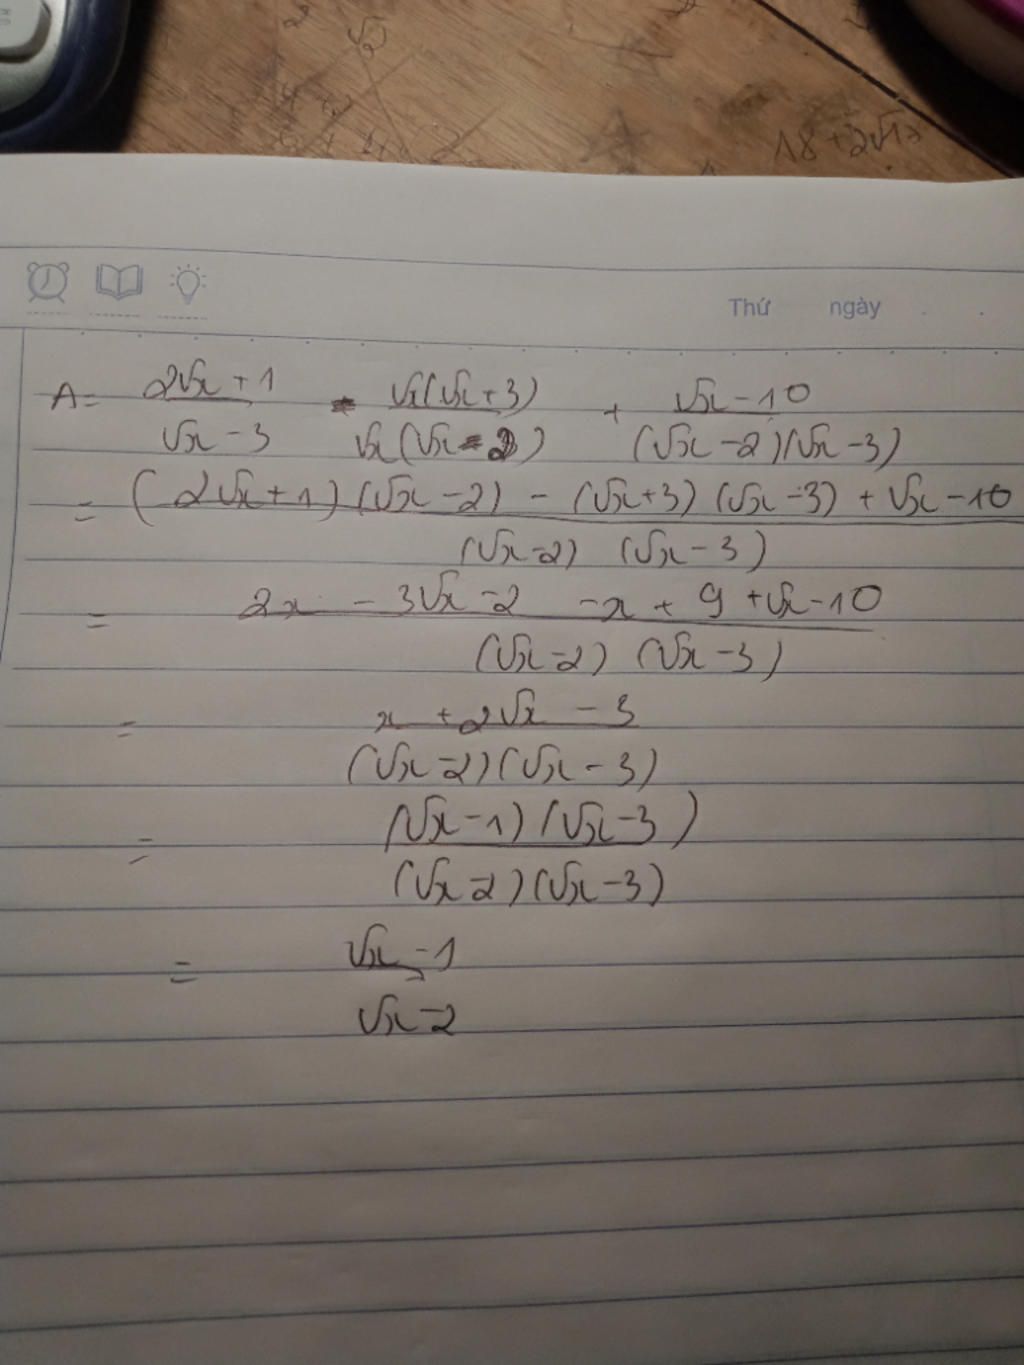 18 + 2√17
Thứ ngày
A = (2√x + 1)/(√x - 3) - (√x(√x + 3))/(√x(√x - 2)) + (√x - 10)/((√x - 2)(√x - 3))
= ((2√x + 1)(√x - 2) - (√x + 3)(√x - 3) + √x - 10)/((√x - 2)(√x - 3))
= (2x - 3√x - 2 - x + 9 + √x - 10)/((√x - 2)(√x - 3))
= (x + 2√x - 3)/((√x - 2)(√x - 3))
= ((√x - 1)(√x - 3))/((√x - 2)(√x - 3))
= (√x - 1)/(√x - 2)